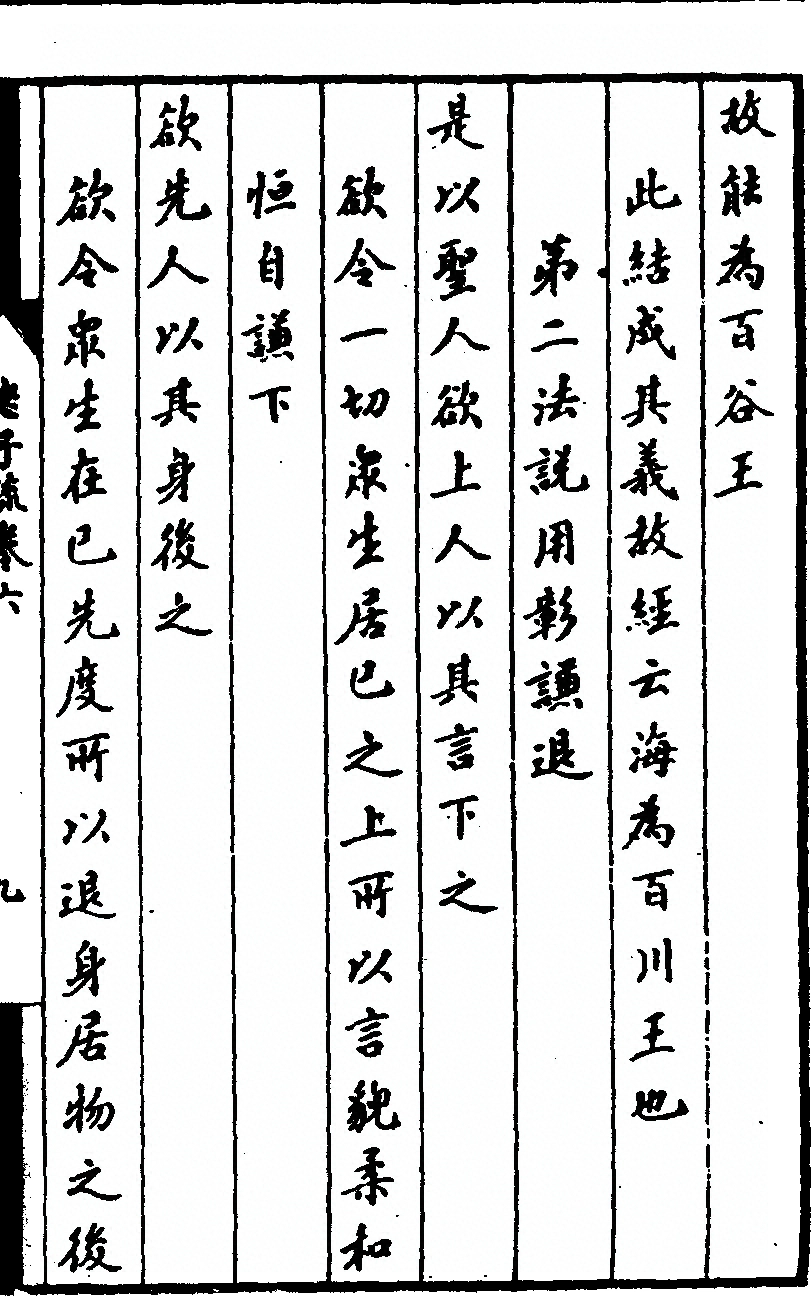 故能為百谷王
此結成其義故經云海為百川王也
第二法說用彰謙退
是以聖人欲上人以其言下之
欲令一切眾生居己之上所以言貌柔和
恒自謙下
欲先人以其身後之
欲令眾生在己先度所以退身居物之後
老子疏卷六
九